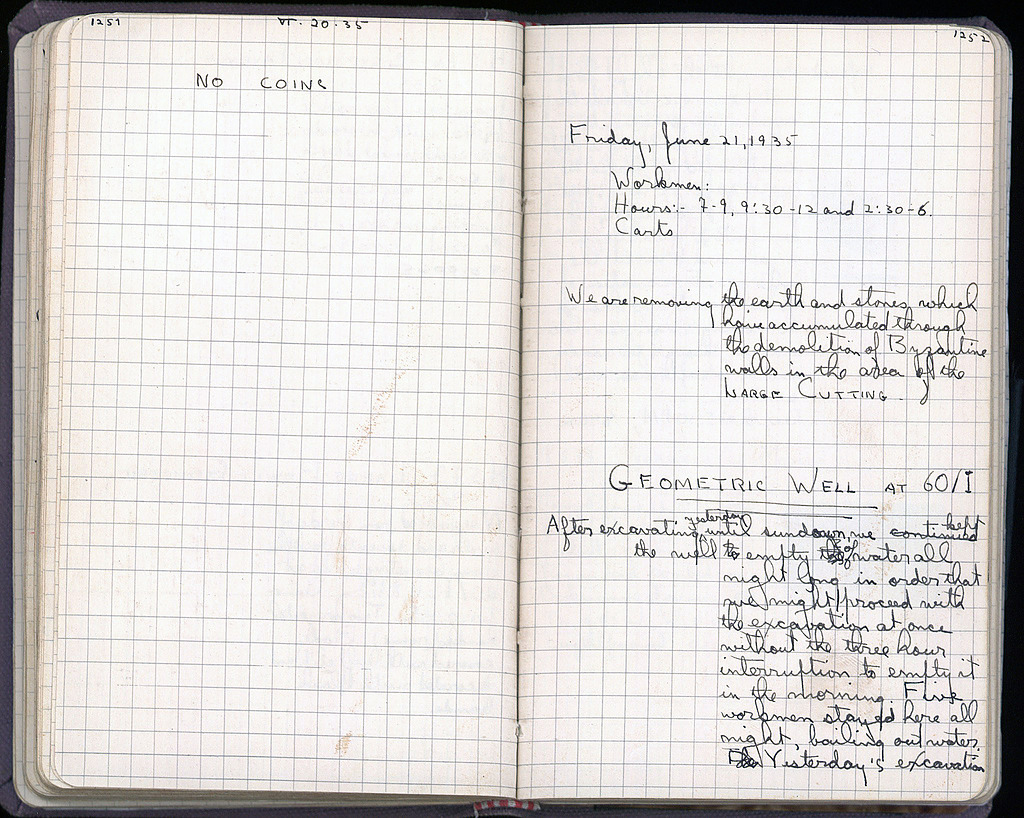 1251
VI. 20. 35
NO COINS
1252
Friday, June 21, 1935
Workmen:
Hours:- 7-9, 9:30-12 and 2:30-6.
Carts
We are removing the earth and stones which
have accumulated through
the demolition of Byzantine
walls in the area of the
LARGE CUTTING.
GEOMETRIC WELL AT 60/I
yesterday kept
After excavating until sundown, we continued
the well to empty of water all
night long in order that
we might proceed with
the excavation at once
without the three hour
interruption to empty it
in the morning. Five
workmen stayed here all
night, bailing out water.
Yesterday's excavation